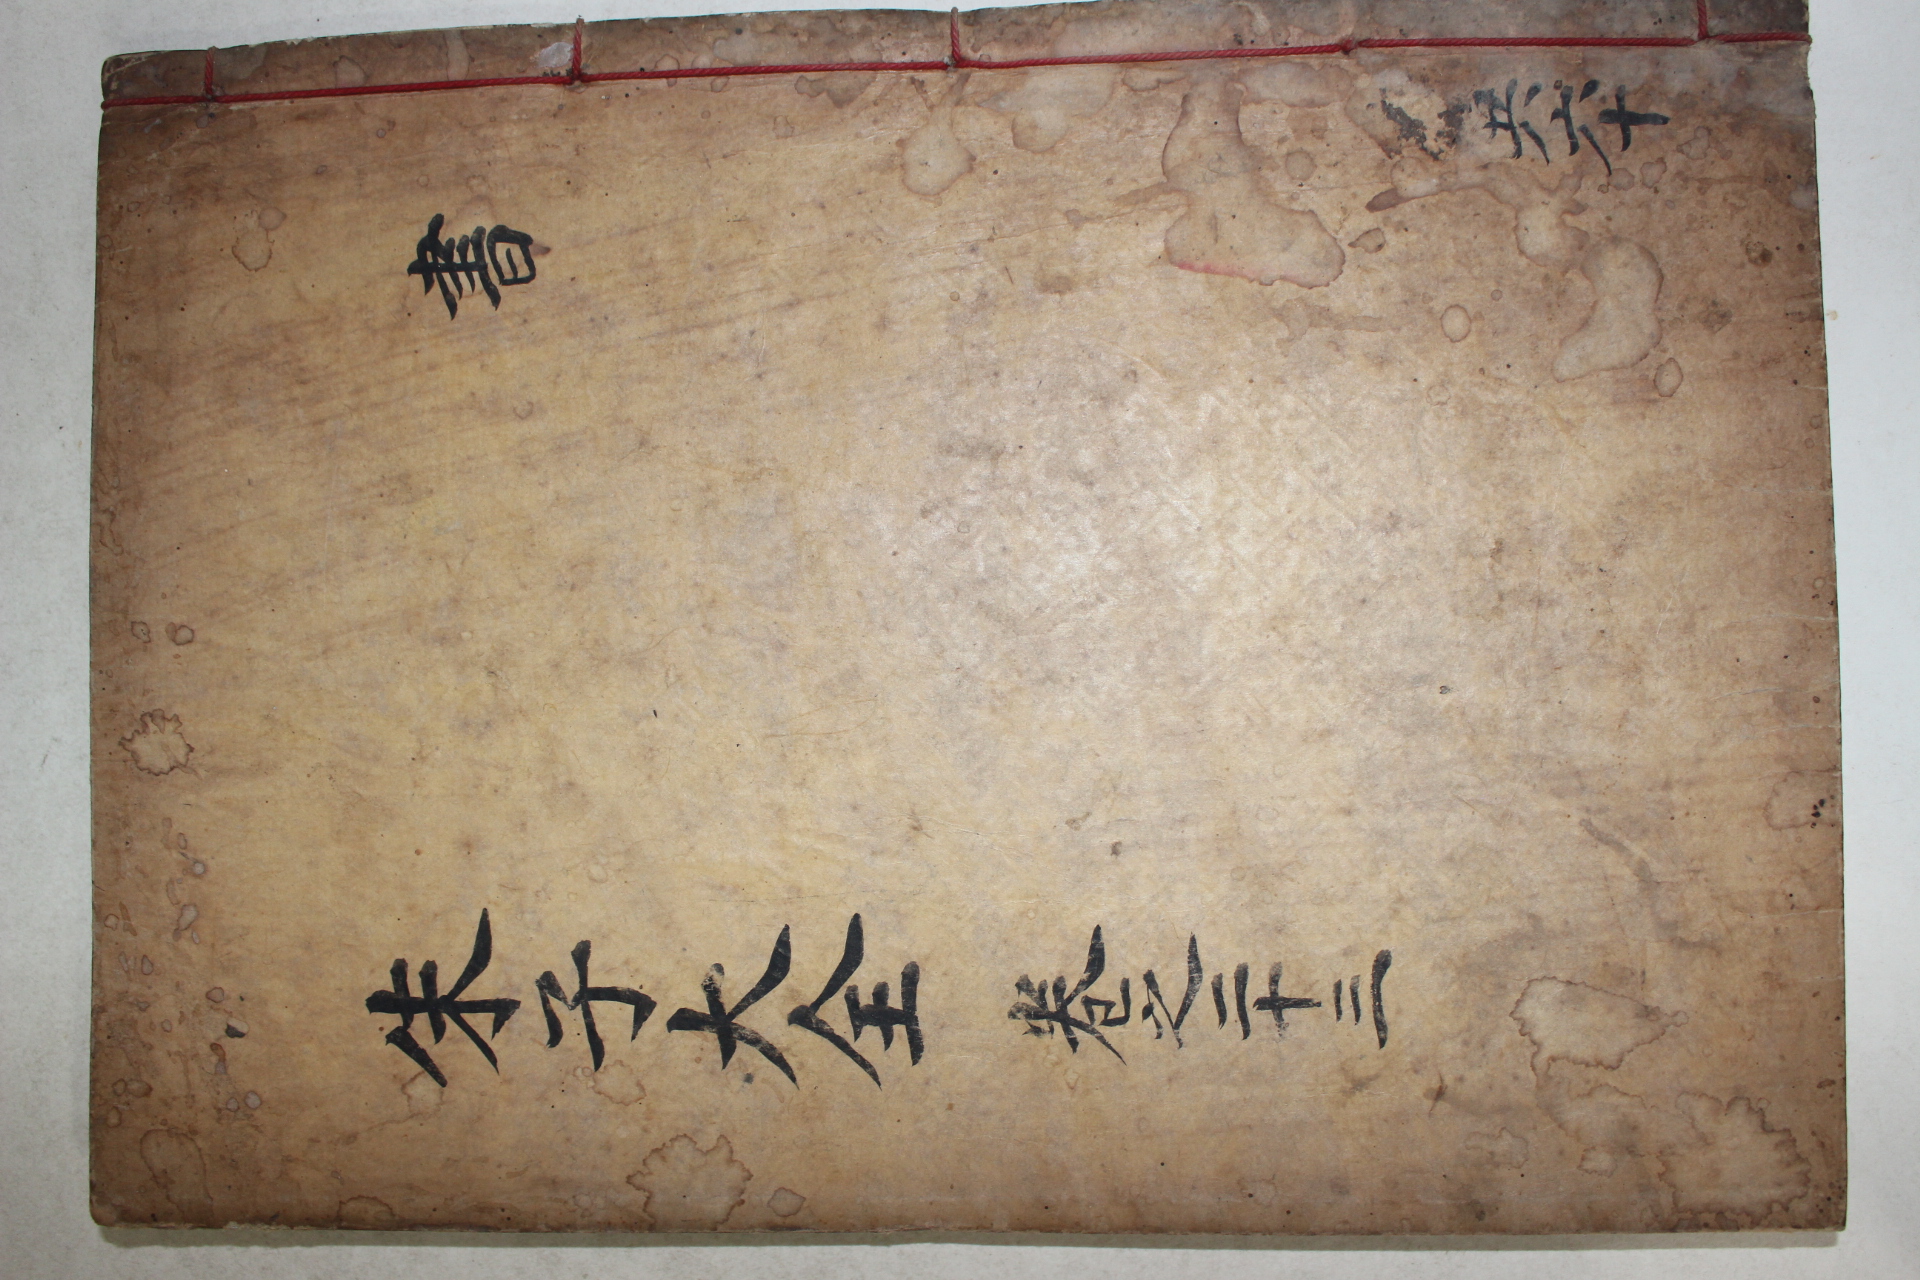 共六十
書
朱子大全 卷之二十三